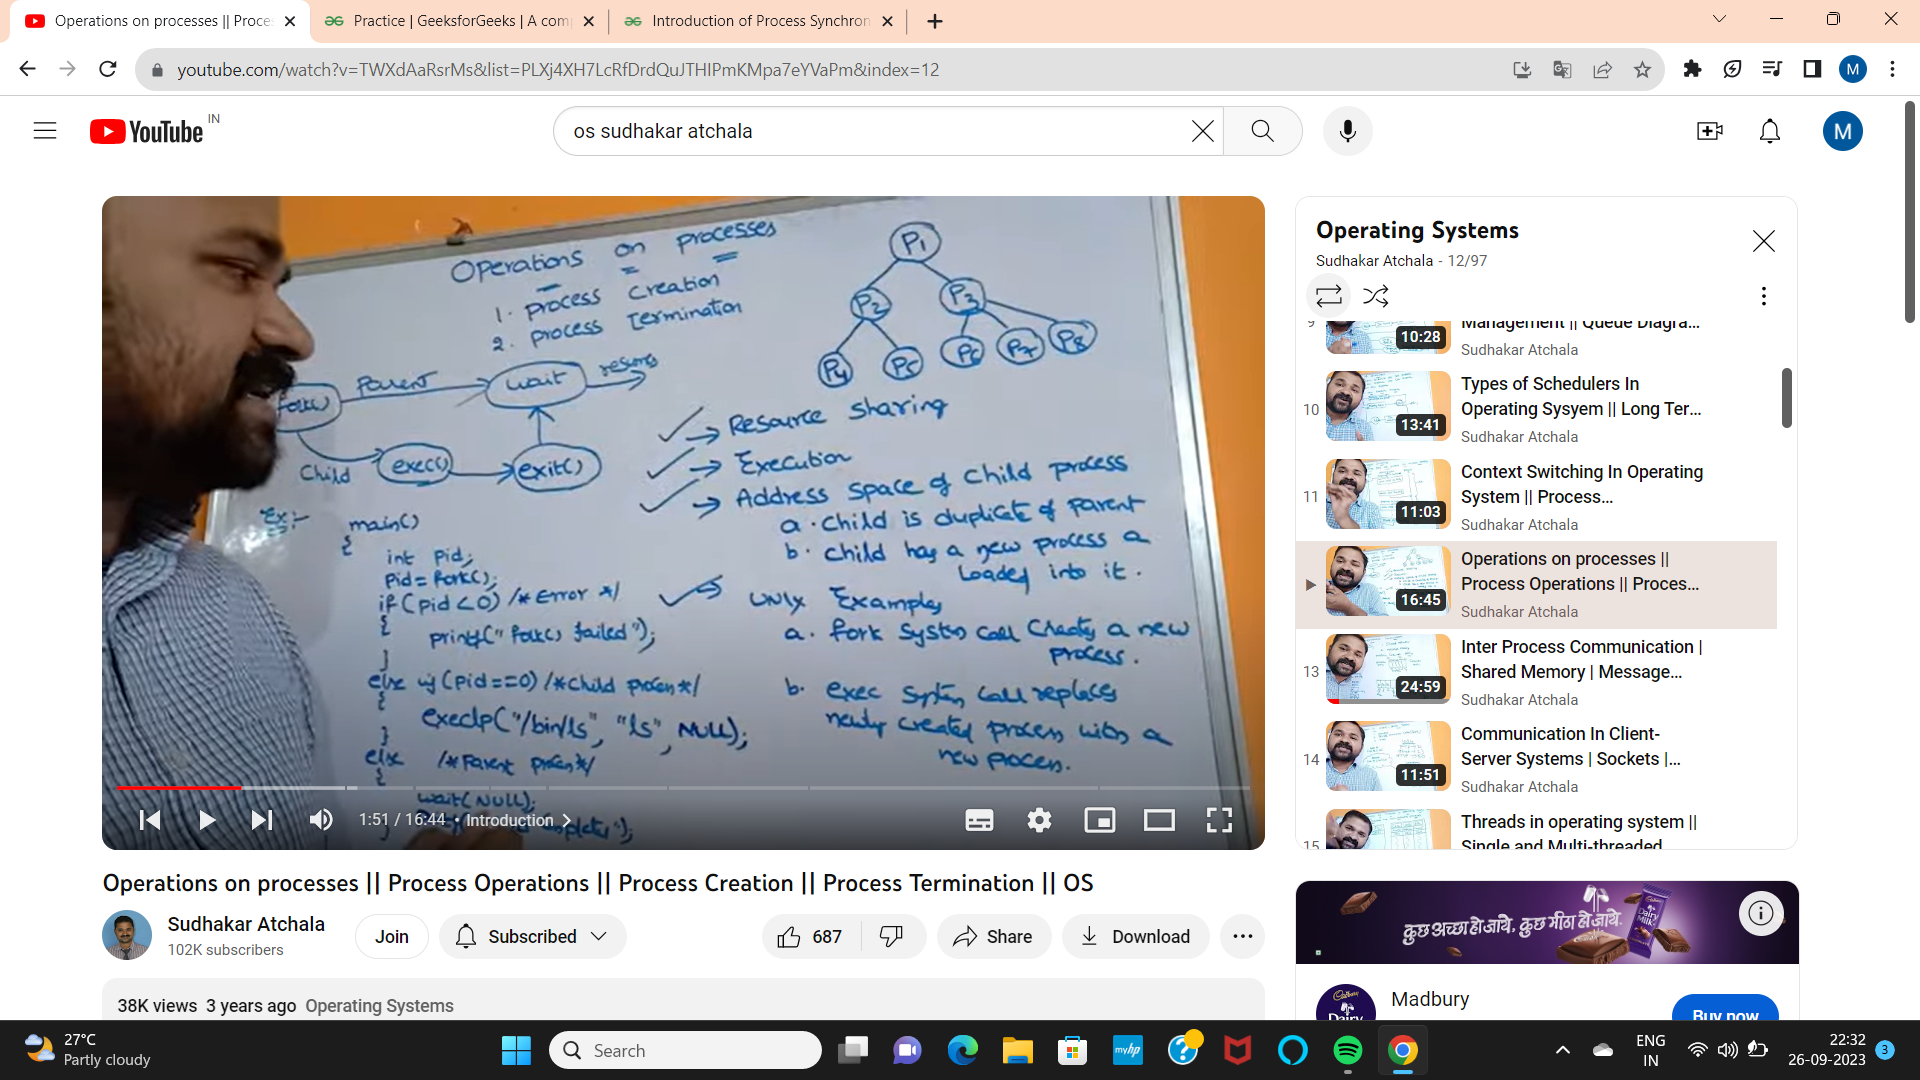 Operations on processes || Proces
Practice | GeeksforGeeks | A com
Introduction of Process Synchron
youtube.com/watch?v=TWXdAaRsrMs&list=PLXj4XH7LcRfDrdQuJTHIPmKMpa7eYVaPm&index=12
M
YouTube IN
os sudhakar atchala
M
Operations on processes
1. process Creation
2. process Termination
P1
P2 P3
P4 P5 P6 P7 P8
fork()
Parent
wait
resums
Child
exec()
exit()
→ Resource sharing
→ Execution
→ Address space of Child process
a. child is duplicate of parent
b. child has a new process a
loaded into it.
UNIX Examples
a. fork system call creates a new
process.
b. exec system call replaces
newly created process with a
new process.
Ex:-
main()
{
int pid;
pid = fork();
if (pid < 0) /* Error */
{
printf(" fork() failed");
}
else if (pid == 0) /* child process */
{
execlp("/bin/ls", "ls", NULL);
}
else /* Parent process */
{
wait(NULL);
1:51 / 16:44 • Introduction
Operations on processes || Process Operations || Process Creation || Process Termination || OS
Sudhakar Atchala
102K subscribers
Join
Subscribed
687
Share
Download
38K views 3 years ago Operating Systems
Operating Systems
Sudhakar Atchala - 12/97
9
10:28
Management || Queue Diagra...
Sudhakar Atchala
10
13:41
Types of Schedulers In
Operating Sysyem || Long Ter...
Sudhakar Atchala
11
11:03
Context Switching In Operating
System || Process...
Sudhakar Atchala
16:45
Operations on processes ||
Process Operations || Proces...
Sudhakar Atchala
13
24:59
Inter Process Communication |
Shared Memory | Message...
Sudhakar Atchala
14
11:51
Communication In Client-
Server Systems | Sockets |...
Sudhakar Atchala
15
Threads in operating system ||
Single and Multi-threaded
कुछ अच्छा हो जाये, कुछ मीठा हो जाये.
Dairy Milk
Cadbury
Dairy
Madbury
Buy now
27°C
Partly cloudy
Search
myhp
ENG
IN
22:32
26-09-2023
3